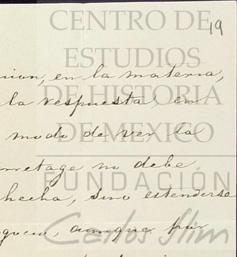 19
CENTRO DE
ESTUDIOS
DE HISTORIA
DE MEXICO
FUNDACIÓN
Carlos Slim
nion, en la materia,
la respuesta, en
modo de ver la
metage no debe
hecha, sino estenderse
aunque por